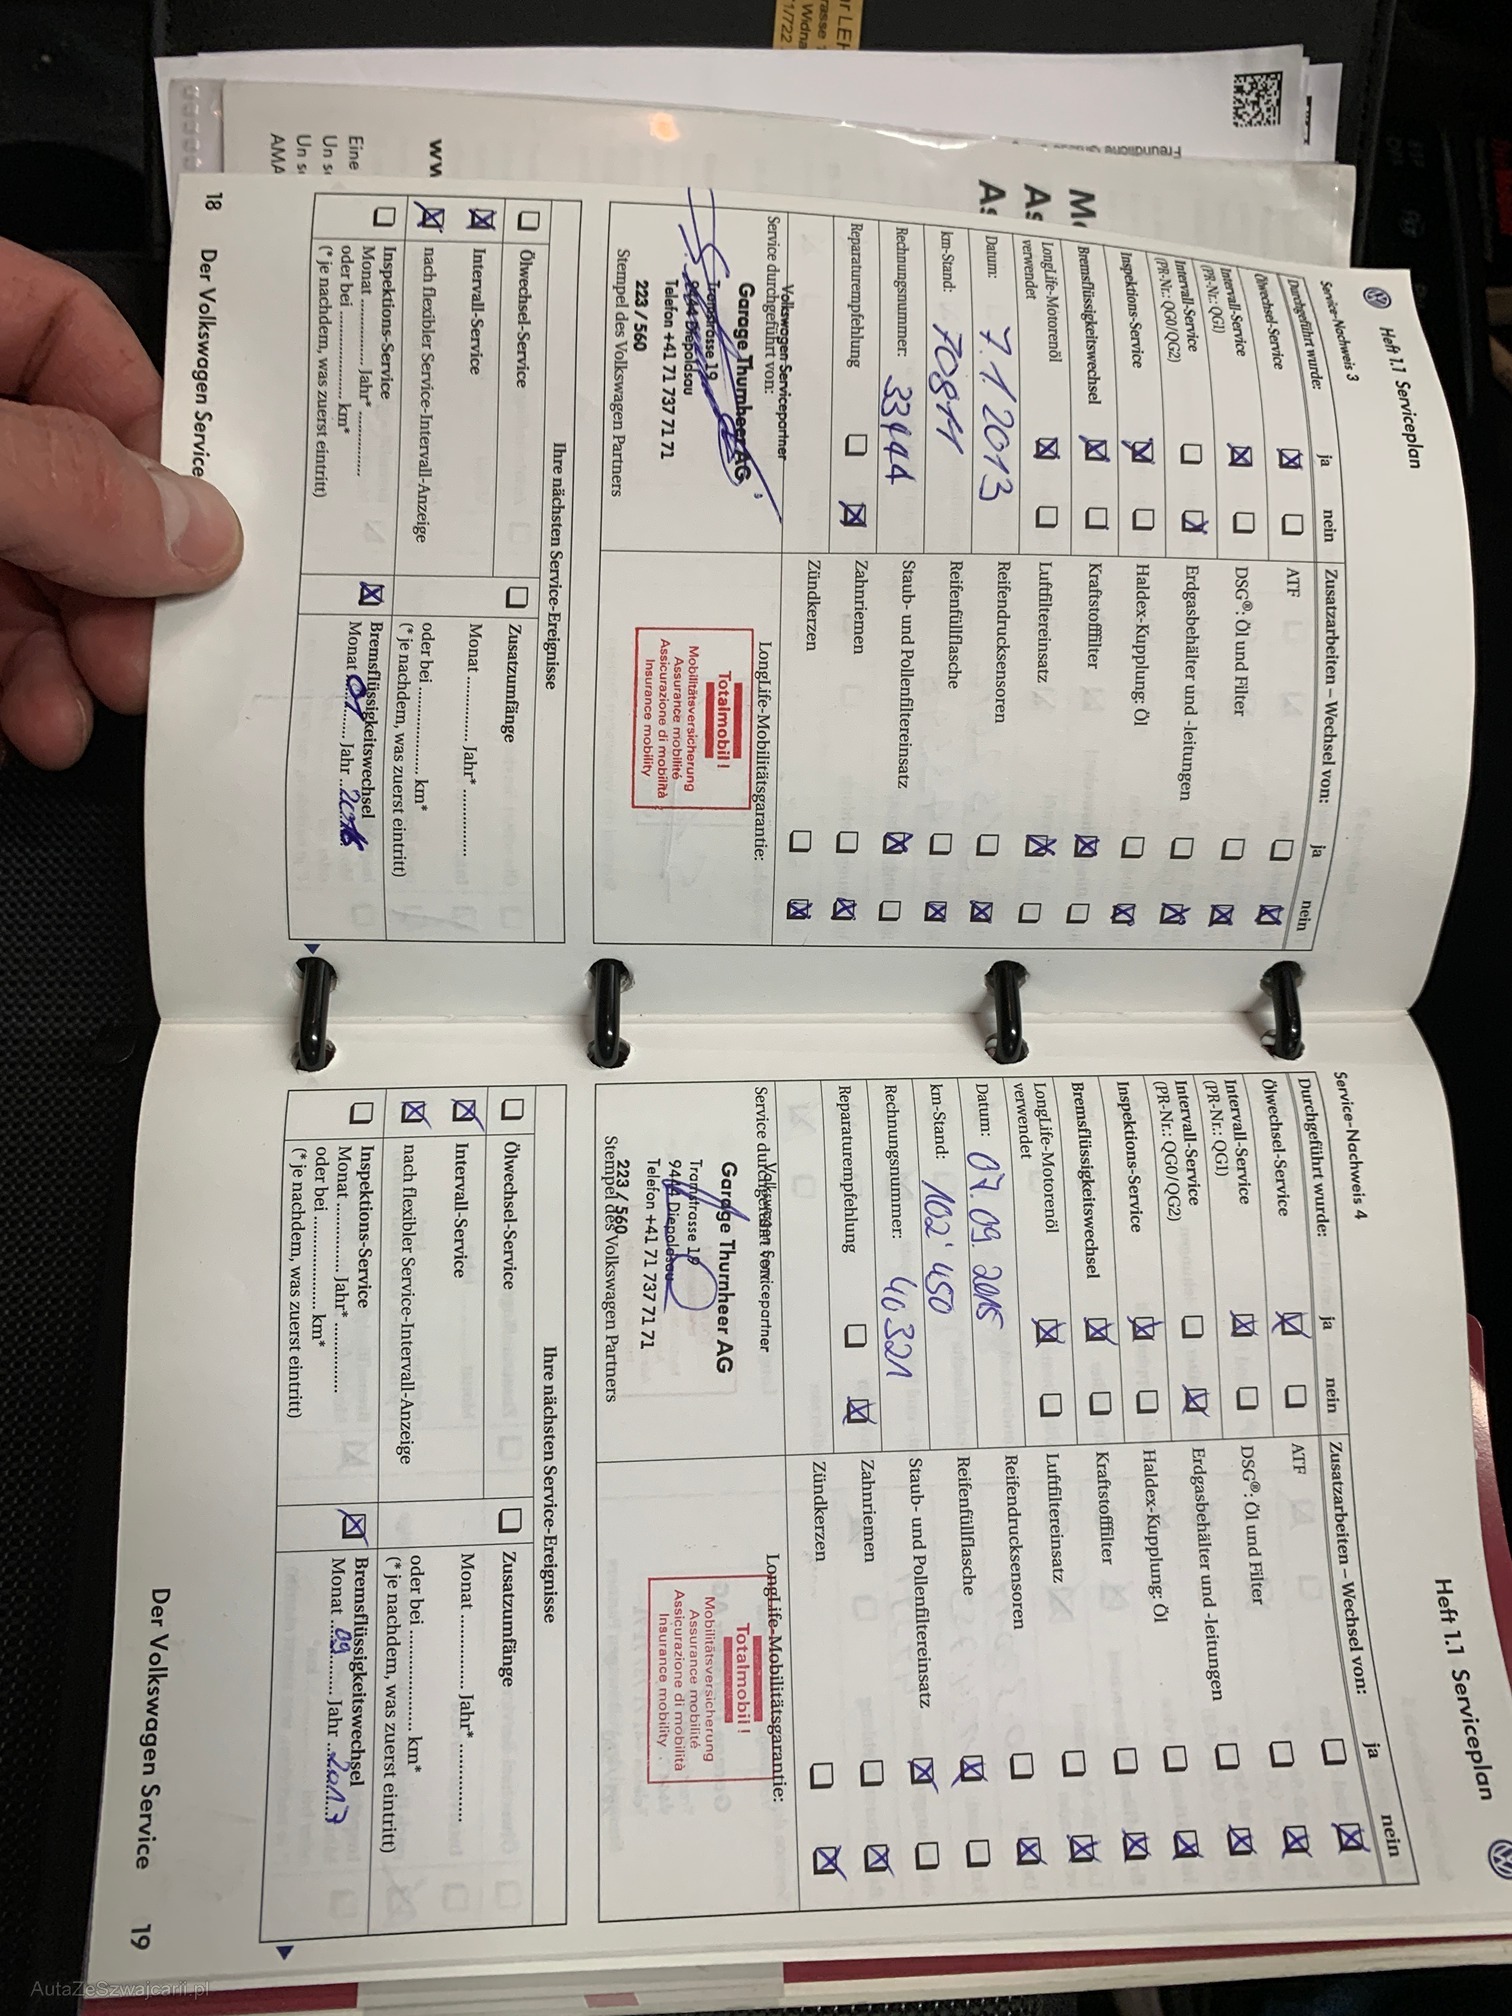 r LEH
rasse 1
Widna
1/722
Freundliche
Me
As
As
ww
Eine
Un s
Un s
AMA
Heft 1.1 Serviceplan
Service-Nachweis 3
Durchgeführt wurde: ja nein
Ölwechsel-Service
Intervall-Service
(PR-Nr.: QG1)
Intervall-Service
(PR-Nr.: QG0/QG2)
Inspektions-Service
Bremsflüssigkeitswechsel
LongLife-Motorenöl
verwendet
Datum: 7.1.2013
km-Stand: 70811
Rechnungsnummer: 33444
Reparaturempfehlung
Zusatzarbeiten – Wechsel von: ja nein
ATF
DSG®: Öl und Filter
Erdgasbehälter und -leitungen
Haldex-Kupplung: Öl
Kraftstofffilter
Luftfiltereinsatz
Reifendrucksensoren
Reifenfüllflasche
Staub- und Pollenfiltereinsatz
Zahnriemen
Zündkerzen
Service durchgeführt von:
Volkswagen Servicepartner
Garage Thurnheer AG
Tramstrasse 19
9444 Diepoldsau
Telefon +41 71 737 71 71
223 / 560
Stempel des Volkswagen Partners
LongLife-Mobilitätsgarantie:
Totalmobil!
Mobilitätsversicherung
Assurance mobilité
Assicurazione di mobilità
Insurance mobility
Ihre nächsten Service-Ereignisse
Ölwechsel-Service
Intervall-Service
nach flexibler Service-Intervall-Anzeige
Inspektions-Service
Monat ............... Jahr* ...............
oder bei .................. km*
(* je nachdem, was zuerst eintritt)
Zusatzumfänge
Monat ............... Jahr* ...............
oder bei .................. km*
(* je nachdem, was zuerst eintritt)
Bremsflüssigkeitswechsel
Monat 01 Jahr
18 Der Volkswagen Service
Heft 1.1 Serviceplan
Service-Nachweis 4
Durchgeführt wurde: ja nein
Ölwechsel-Service
Intervall-Service
(PR-Nr.: QG1)
Intervall-Service
(PR-Nr.: QG0/QG2)
Inspektions-Service
Bremsflüssigkeitswechsel
LongLife-Motorenöl
verwendet
Datum: 07.09.2015
km-Stand: 102'450
Rechnungsnummer: 40321
Reparaturempfehlung
Zusatzarbeiten – Wechsel von: ja nein
ATF
DSG®: Öl und Filter
Erdgasbehälter und -leitungen
Haldex-Kupplung: Öl
Kraftstofffilter
Luftfiltereinsatz
Reifendrucksensoren
Reifenfüllflasche
Staub- und Pollenfiltereinsatz
Zahnriemen
Zündkerzen
Service durchgeführt von:
Volkswagen Servicepartner
Garage Thurnheer AG
Tramstrasse 19
9444 Diepoldsau
Telefon +41 71 737 71 71
223 / 560
Stempel des Volkswagen Partners
LongLife-Mobilitätsgarantie:
Totalmobil!
Mobilitätsversicherung
Assurance mobilité
Assicurazione di mobilità
Insurance mobility
Ihre nächsten Service-Ereignisse
Ölwechsel-Service
Intervall-Service
nach flexibler Service-Intervall-Anzeige
Inspektions-Service
Monat ............... Jahr* ...............
oder bei .................. km*
(* je nachdem, was zuerst eintritt)
Zusatzumfänge
Monat ............... Jahr* ...............
oder bei .................. km*
(* je nachdem, was zuerst eintritt)
Bremsflüssigkeitswechsel
Monat 09 Jahr 2017
Der Volkswagen Service 19
AutaZeSzwajcarii.pl